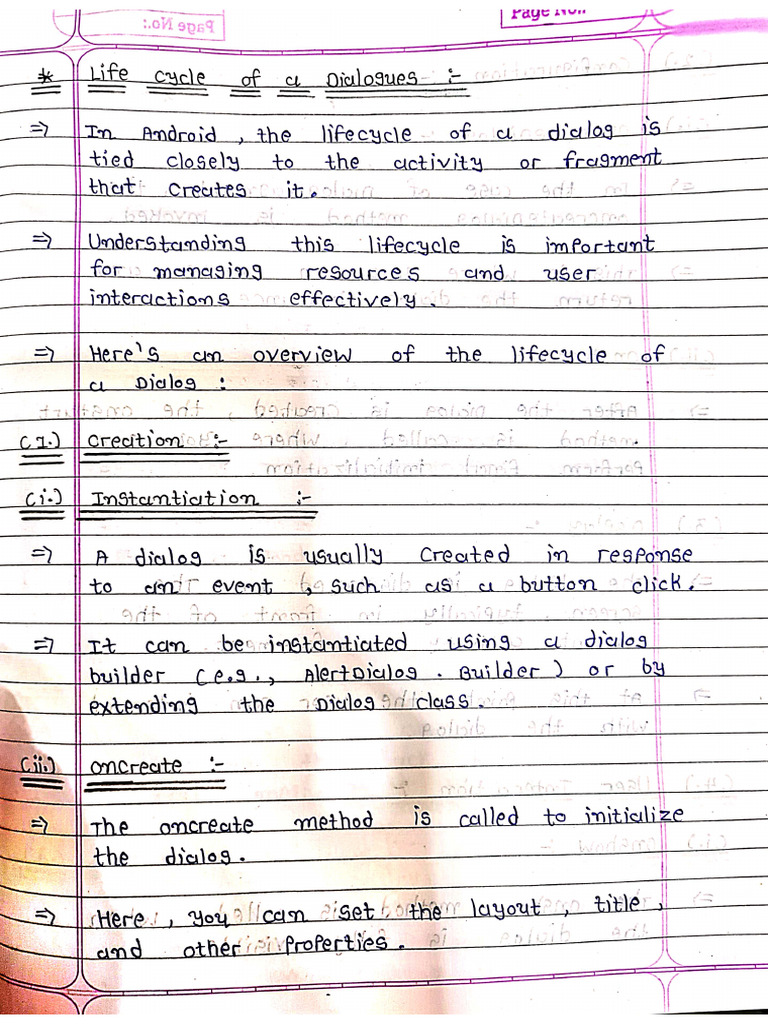 Page No.:
* Life cycle of a Dialogues :-
=> In Android, the lifecycle of a dialog is
tied closely to the activity or fragment
that creates it.
=> Understanding this lifecycle is important
for managing resources and user
interactions effectively.
=> Here's an overview of the lifecycle of
a Dialog :
(1.) Creation :-
(i.) Instantiation :-
=> A dialog is usually created in response
to an event, such as a button click.
=> It can be instantiated using a dialog
builder (e.g., AlertDialog. Builder) or by
extending the Dialog class.
(ii.) oncreate :-
=> The oncreate method is called to initialize
the dialog.
=> Here, you can set the layout, title,
and other Properties.